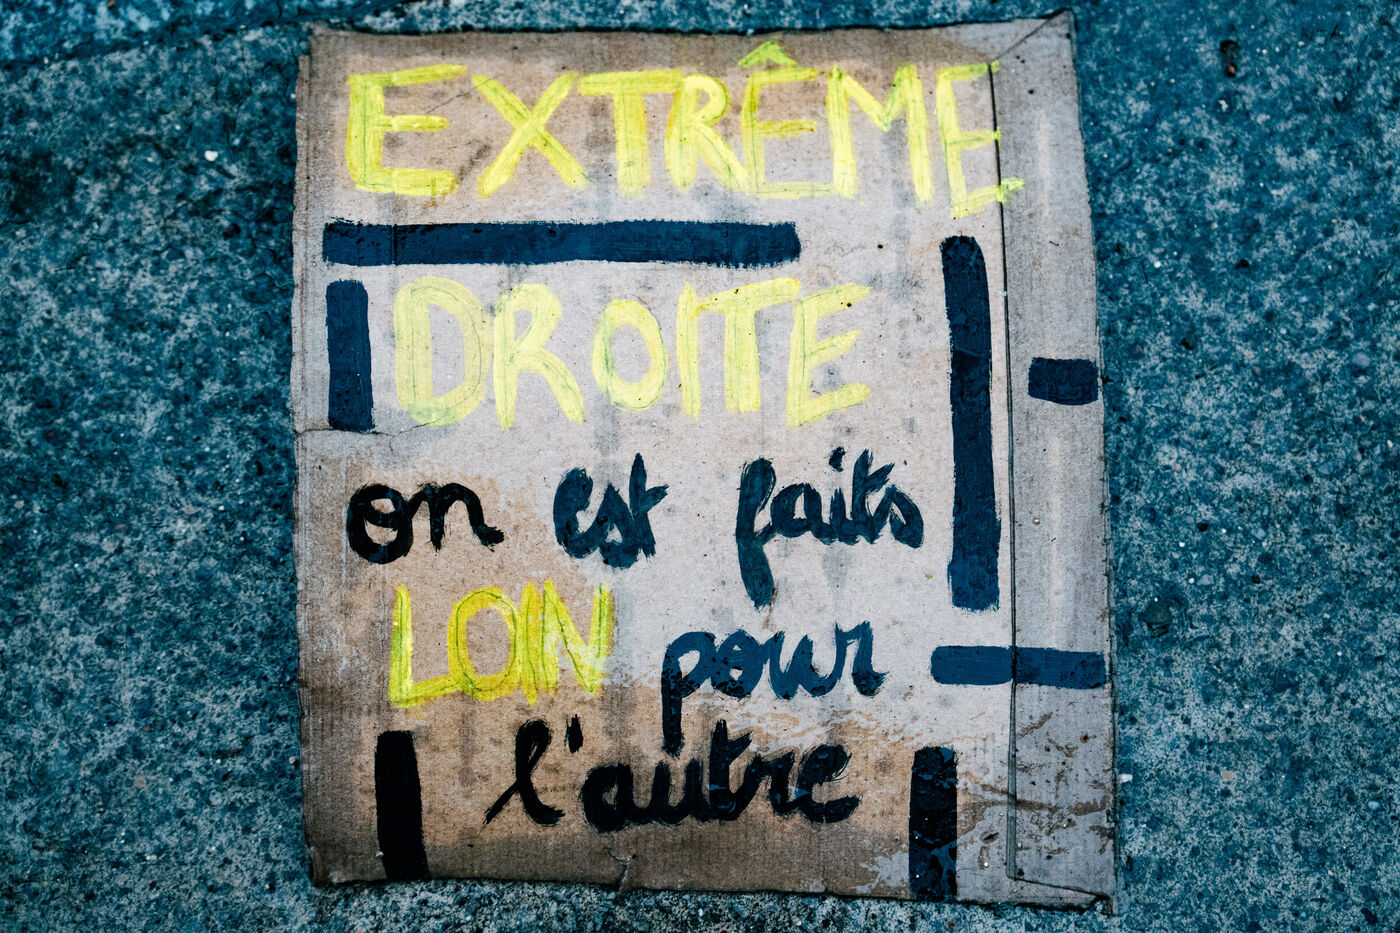 EXTRÊME
DROITE
on est faits
LOIN pour
l'autre